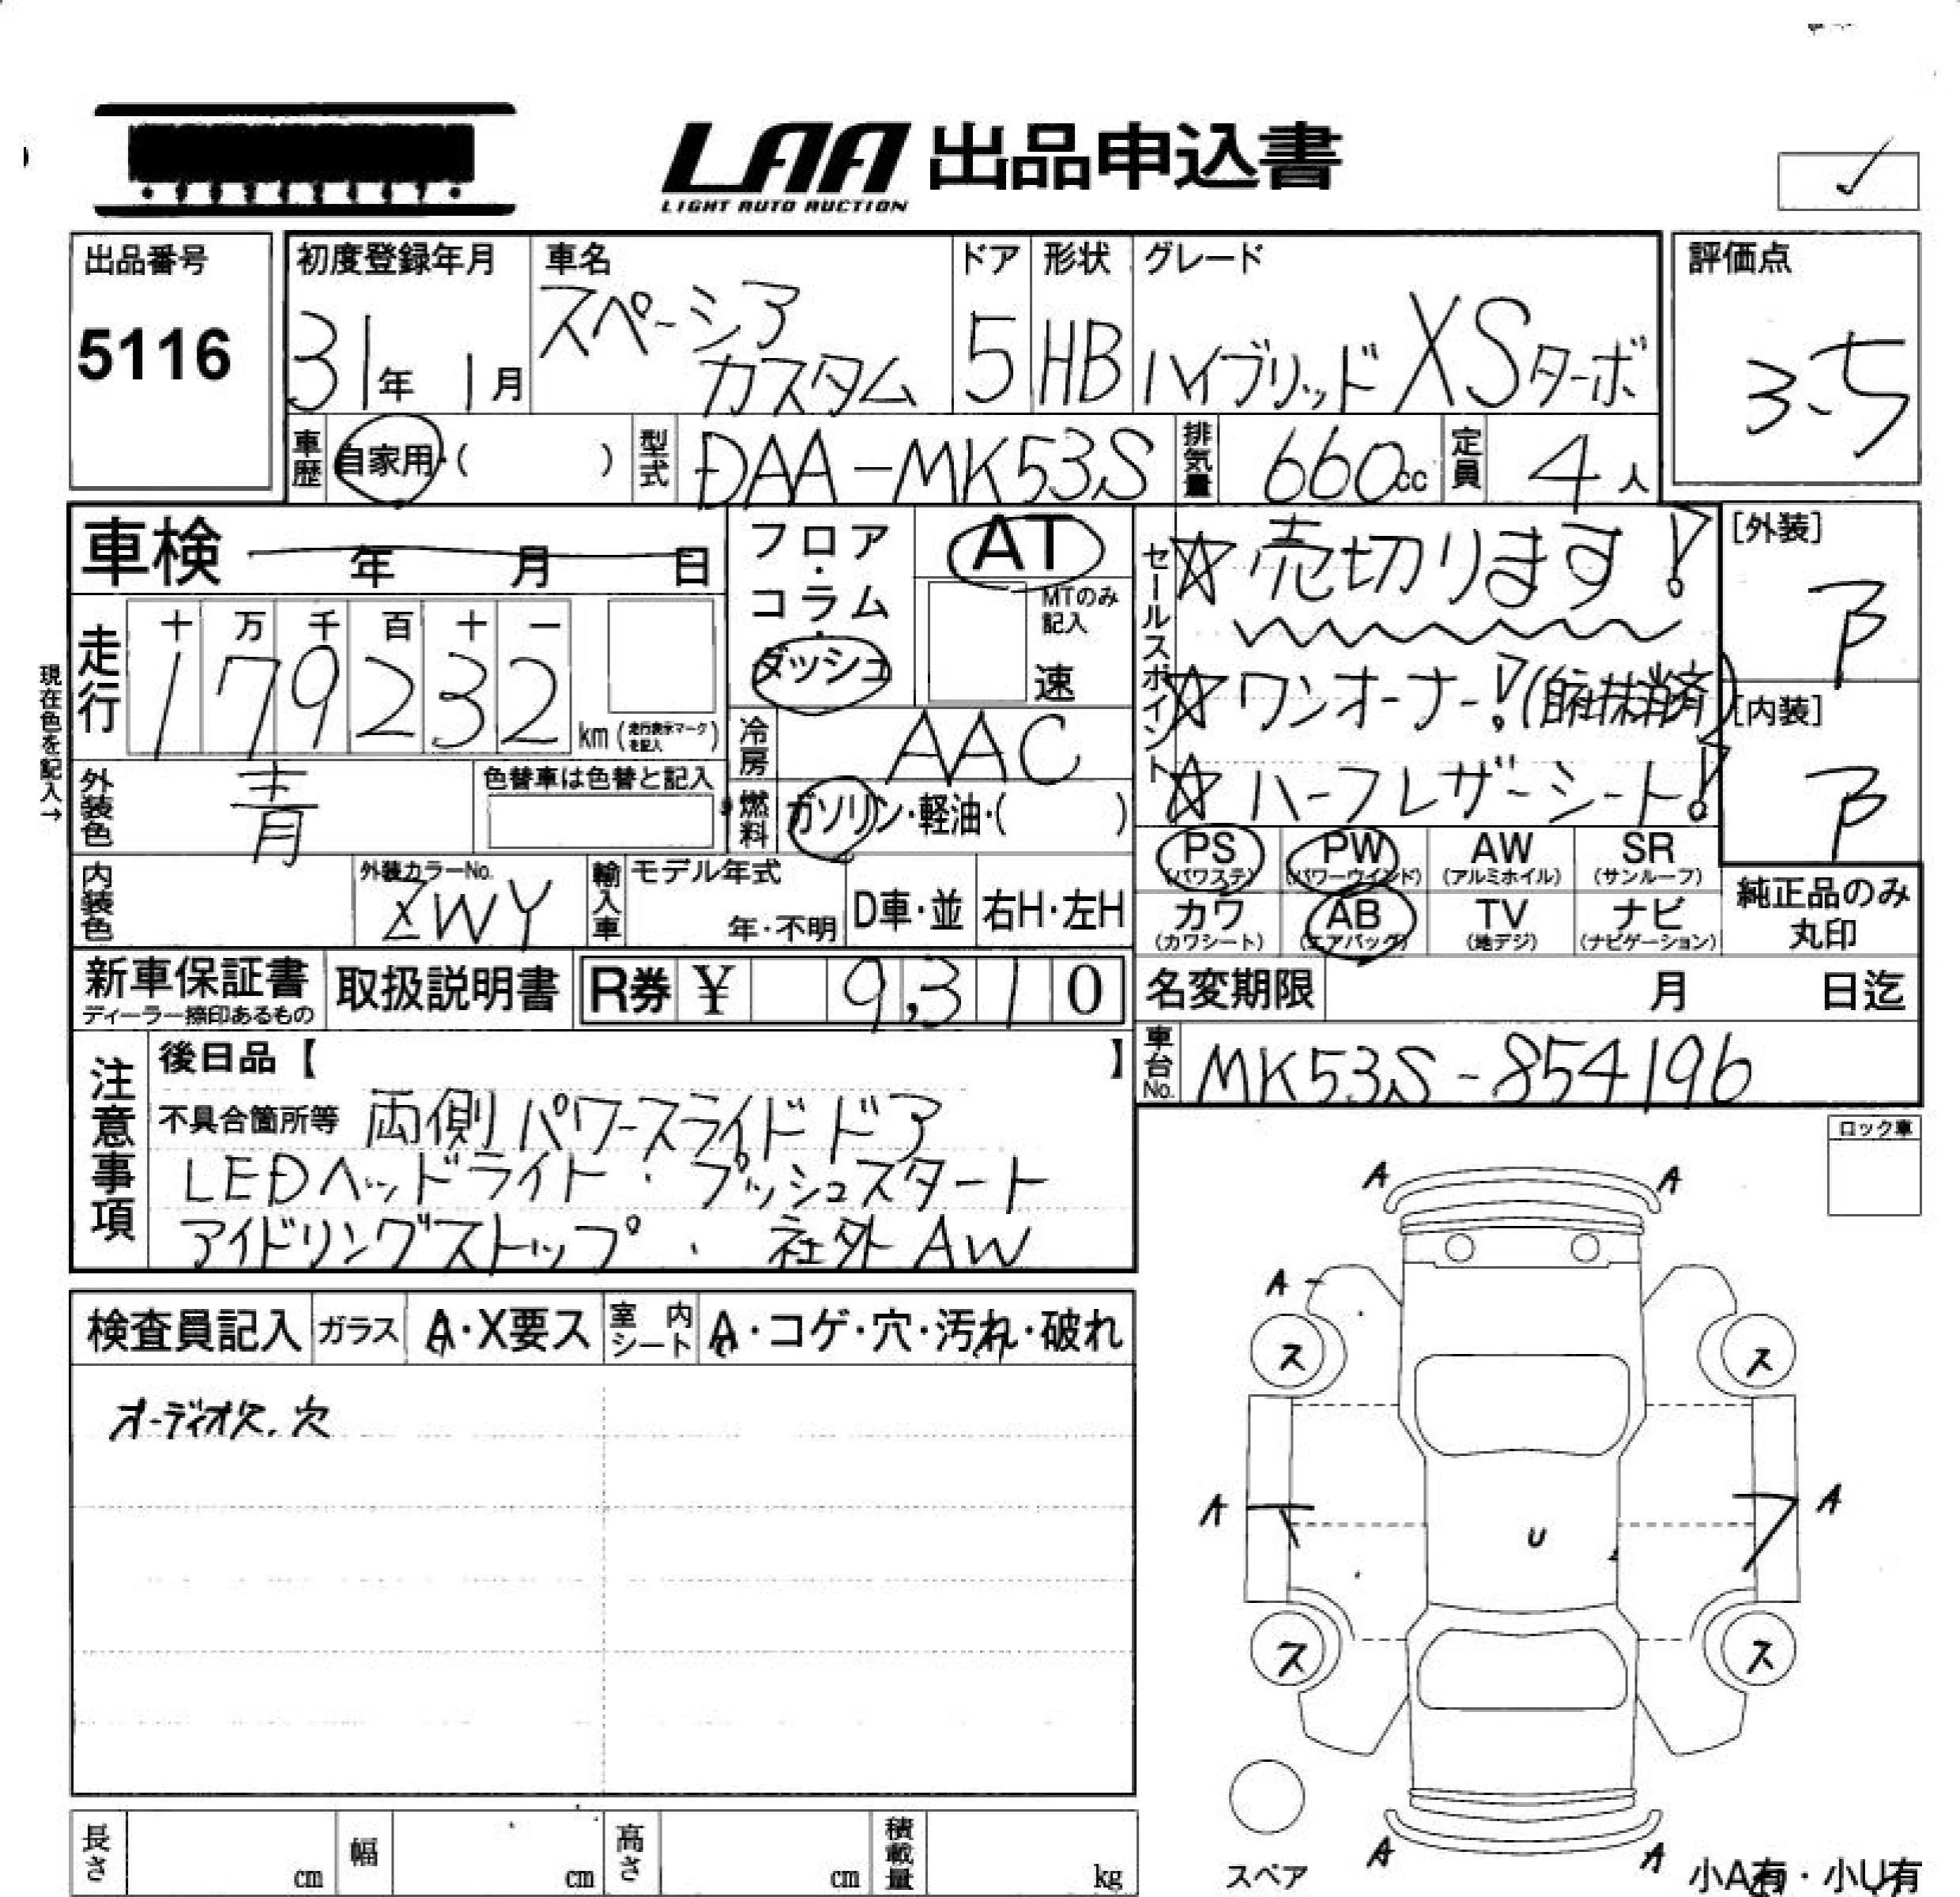 LAA 出品申込書
LIGHT AUTO AUCTION
出品番号
5116
初度登録年月
31年 1月
車名
スペーシア
カスタム
ドア
5
形状
HB
グレード
ハイブリッド XSターボ
評価点
3.5
車歴 自家用・( )
型式 DAA-MK53S
排気量 660cc
定員 4人
車検 年 月 日
走行
十 万 千 百 十 一
1 7 9 2 3 2 km (走行表示マークを記入)
現在色を記入→
外装色 青
色替車は色替と記入
内装色
外装カラーNo.
ZWY
フロア・コラム・ダッシュ
AT
MTのみ記入
速
冷房 AAC
燃料 ガソリン・軽油・( )
輸入車
モデル年式
年・不明
D車・並
右H・左H
セールスポイント
☆売切ります!
☆ワンオーナー!(自社抹消済)
☆ハーフレザーシート!
[外装]
B
[内装]
B
PS (パワステ)
PW (パワーウインド)
AW (アルミホイル)
SR (サンルーフ)
カワ (カワシート)
AB (エアバッグ)
TV (地デジ)
ナビ (ナビゲーション)
純正品のみ丸印
新車保証書
ディーラー捺印あるもの
取扱説明書
R券 ¥ 9,310
名変期限 月 日迄
車台No. MK53S-854196
注意事項
後日品【 】
不具合箇所等 両側パワースライドドア
LEDヘッドライト・プッシュスタート
アイドリングストップ・社外AW
ロック車
検査員記入
ガラス A・X要ス
室内シート A・コゲ・穴・汚れ・破れ
オーディオ欠.穴
A A
A
ス ス
A A
U
ス ス
A A
スペア
小A有・小U有
長さ cm
幅 cm
高さ cm
積載量 kg